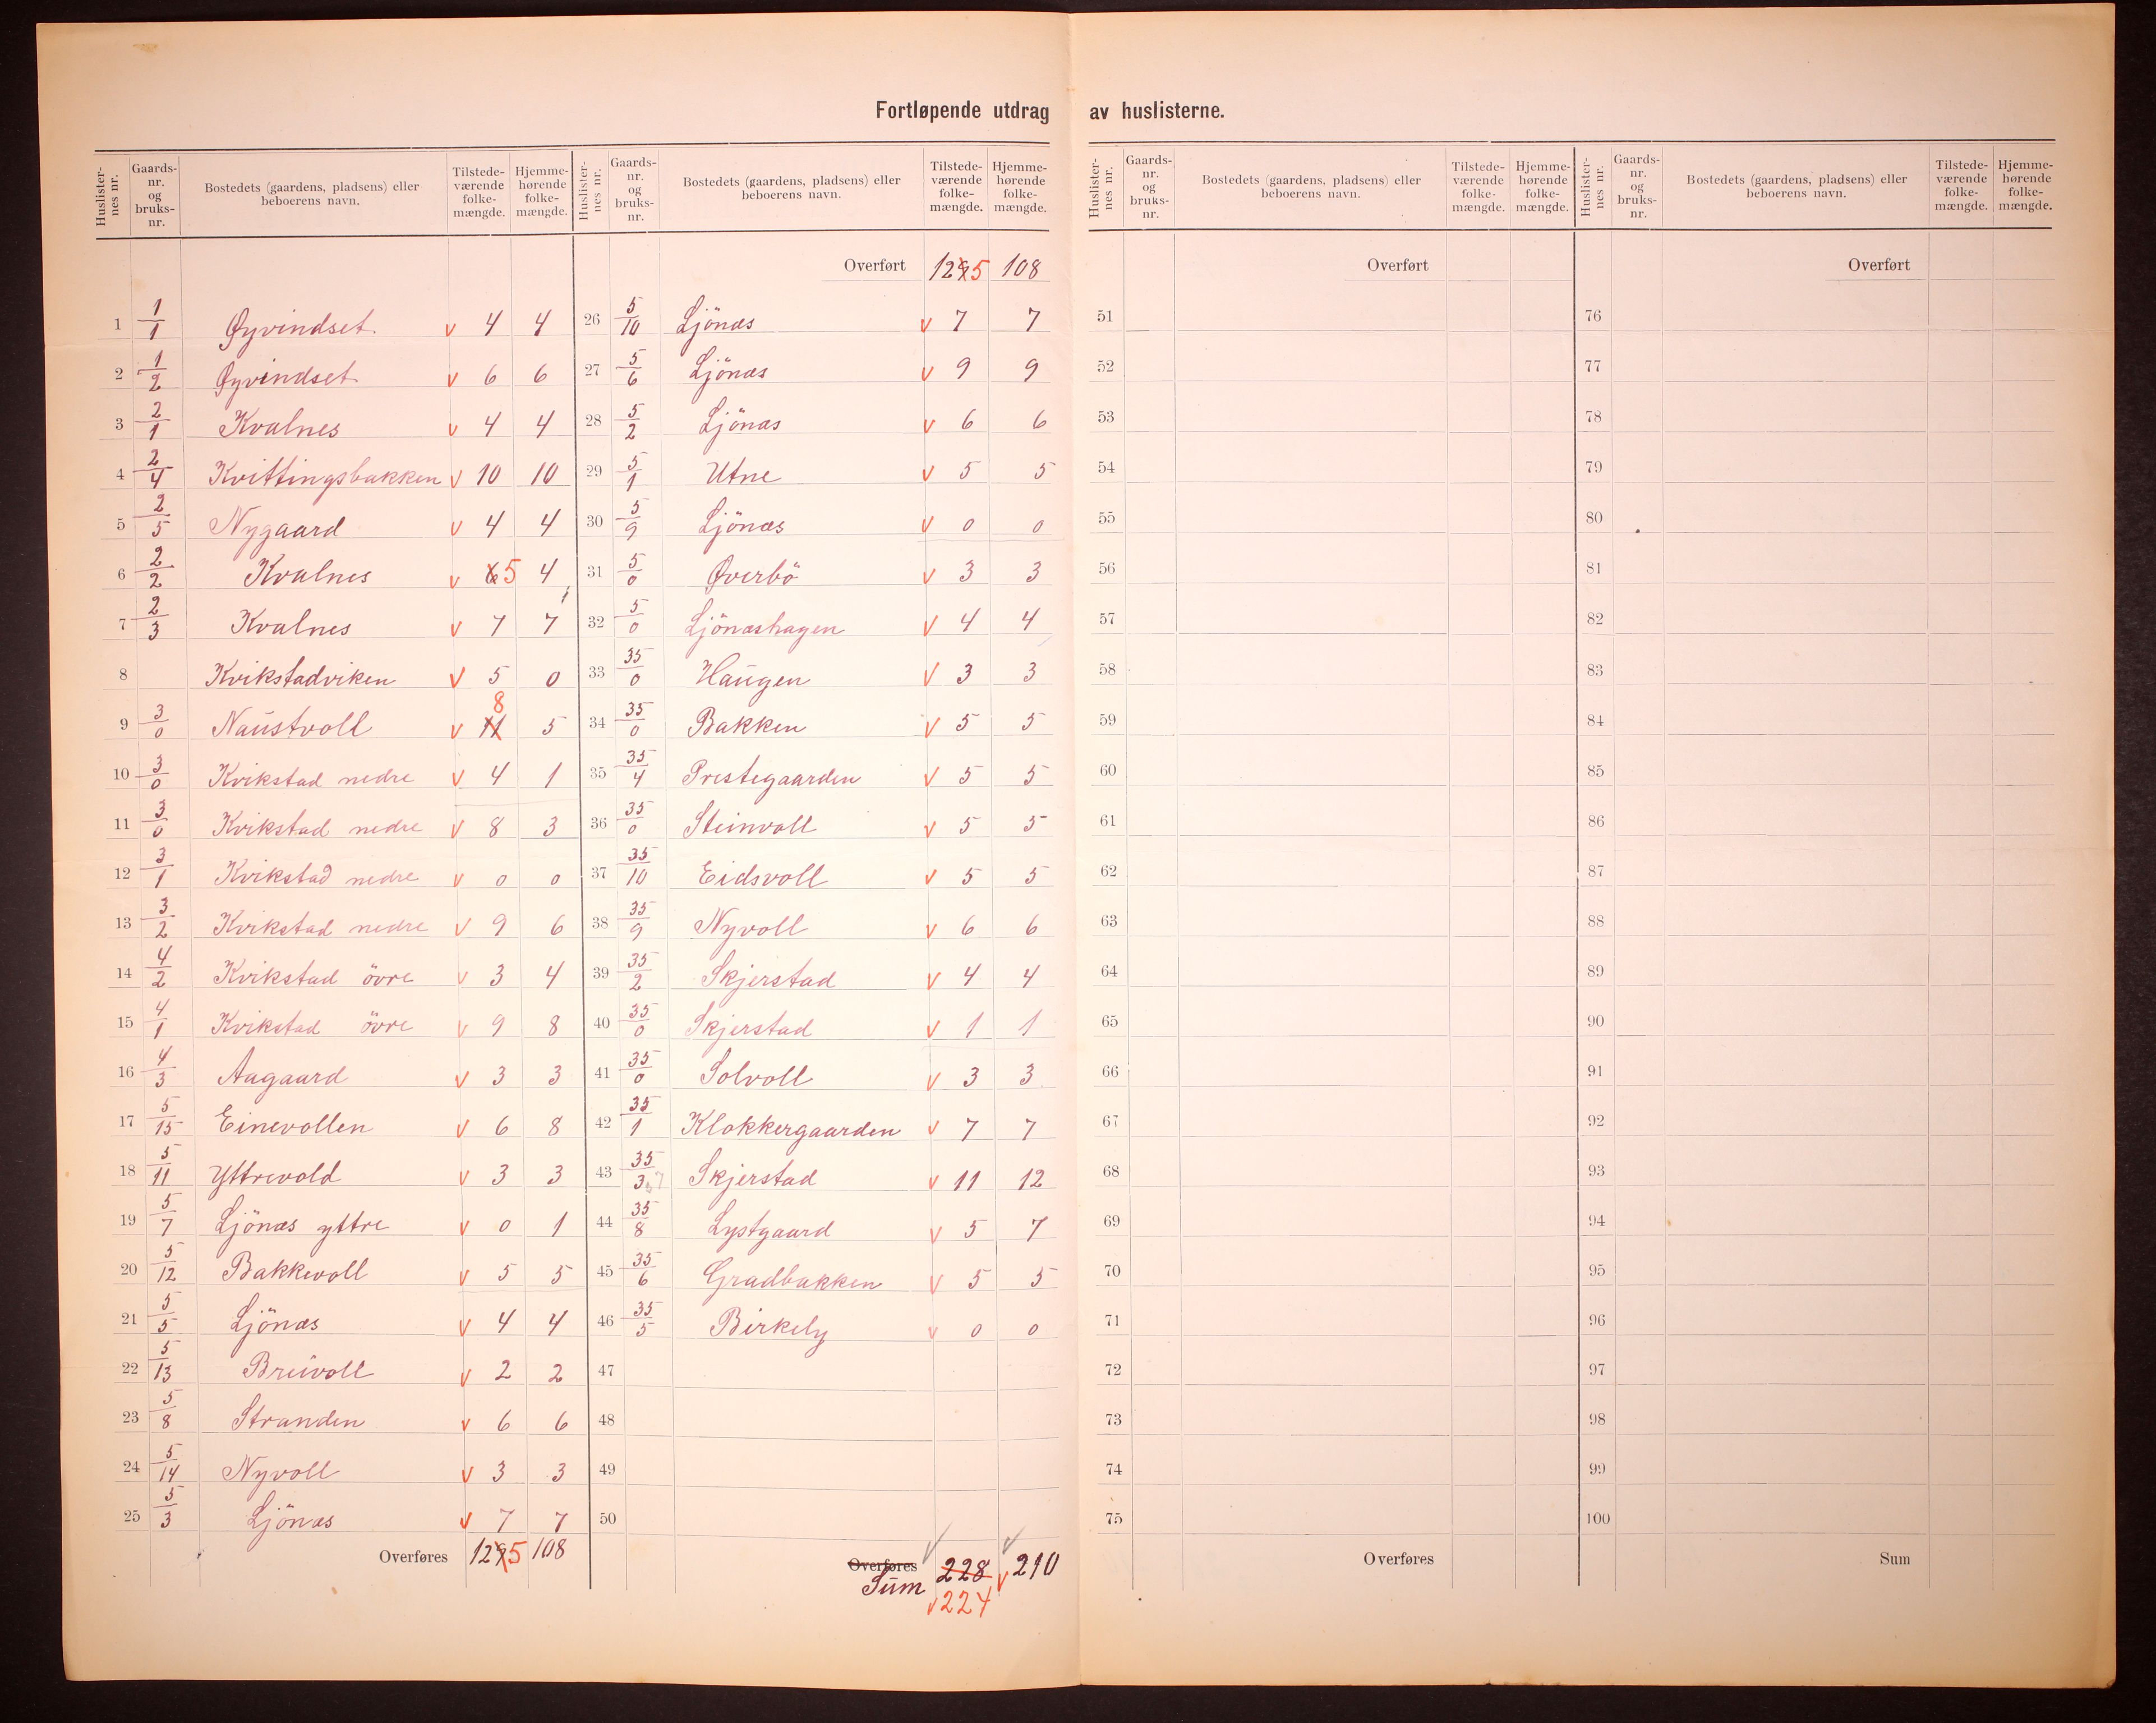 Fortløpende utdrag av huslisterne.
Huslister-nes nr. | Gaards-nr. og bruks-nr. | Bostedets (gaardens, pladsens) eller beboerens navn. | Tilstede-værende folke-mængde. | Hjemme-hørende folke-mængde.
1 1/1 Øyvindset. v 4 4
2 1/2 Øyvindset v 6 6
3 2/1 Kvalnes v 4 4
4 2/4 Kvittingsbakken v 10 10
5 2/5 Nygaard v 4 4
6 2/2 Kvalnes v 6 5 4
7 2/3 Kvalnes v 7 7
8 Kvikstadviken v 5 0
9 3/0 Naustvoll v 11 8 5
10 3/0 Kvikstad nedre v 4 1
11 3/0 Kvikstad nedre v 8 3
12 3/1 Kvikstad nedre v 0 0
13 3/2 Kvikstad nedre v 9 6
14 4/2 Kvikstad övre v 3 4
15 4/1 Kvikstad övre v 9 8
16 4/3 Aagaard v 3 3
17 5/15 Einevollen v 6 8
18 5/11 Yttrevold v 3 3
19 5/7 Ljönæs yttre v 0 1
20 5/12 Bakkevoll v 5 5
21 5/5 Ljönæs v 4 4
22 5/13 Breivoll v 2 2
23 5/8 Stranden v 6 6
24 5/14 Nyvoll v 3 3
25 5/3 Ljönæs v 7 7
Overføres 129 5 108
Huslister-nes nr. | Gaards-nr. og bruks-nr. | Bostedets (gaardens, pladsens) eller beboerens navn. | Tilstede-værende folke-mængde. | Hjemme-hørende folke-mængde.
Overført 129 5 108
26 5/10 Ljönæs v 7 7
27 5/6 Ljönæs v 9 9
28 5/2 Ljönæs v 6 6
29 5/1 Utne v 5 5
30 5/9 Ljönæs v 0 0
31 5/0 Øverbö v 3 3
32 5/0 Ljönæshagen v 4 4
33 35/0 Haugen v 3 3
34 35/0 Bakken v 5 5
35 35/4 Prestegaarden v 5 5
36 35/0 Steinvoll v 5 5
37 35/10 Eidsvoll v 5 5
38 35/9 Nyvoll v 6 6
39 35/2 Skjerstad v 4 4
40 35/0 Skjerstad v 1 1
41 35/0 Solvoll v 3 3
42 35/1 Klokkergaarden v 7 7
43 35/3 Skjerstad v 11 12
44 35/8 Lystgaard v 5 7
45 35/6 Gradbakken v 5 5
46 35/5 Birkely v 0 0
47
48
49
50
Overføres
Sum 228 v 210
v 224
Huslister-nes nr. | Gaards-nr. og bruks-nr. | Bostedets (gaardens, pladsens) eller beboerens navn. | Tilstede-værende folke-mængde. | Hjemme-hørende folke-mængde.
Overført
51
52
53
54
55
56
57
58
59
60
61
62
63
64
65
66
67
68
69
70
71
72
73
74
75
Overføres
Huslister-nes nr. | Gaards-nr. og bruks-nr. | Bostedets (gaardens, pladsens) eller beboerens navn. | Tilstede-værende folke-mængde. | Hjemme-hørende folke-mængde.
Overført
76
77
78
79
80
81
82
83
84
85
86
87
88
89
90
91
92
93
94
95
96
97
98
99
100
Sum